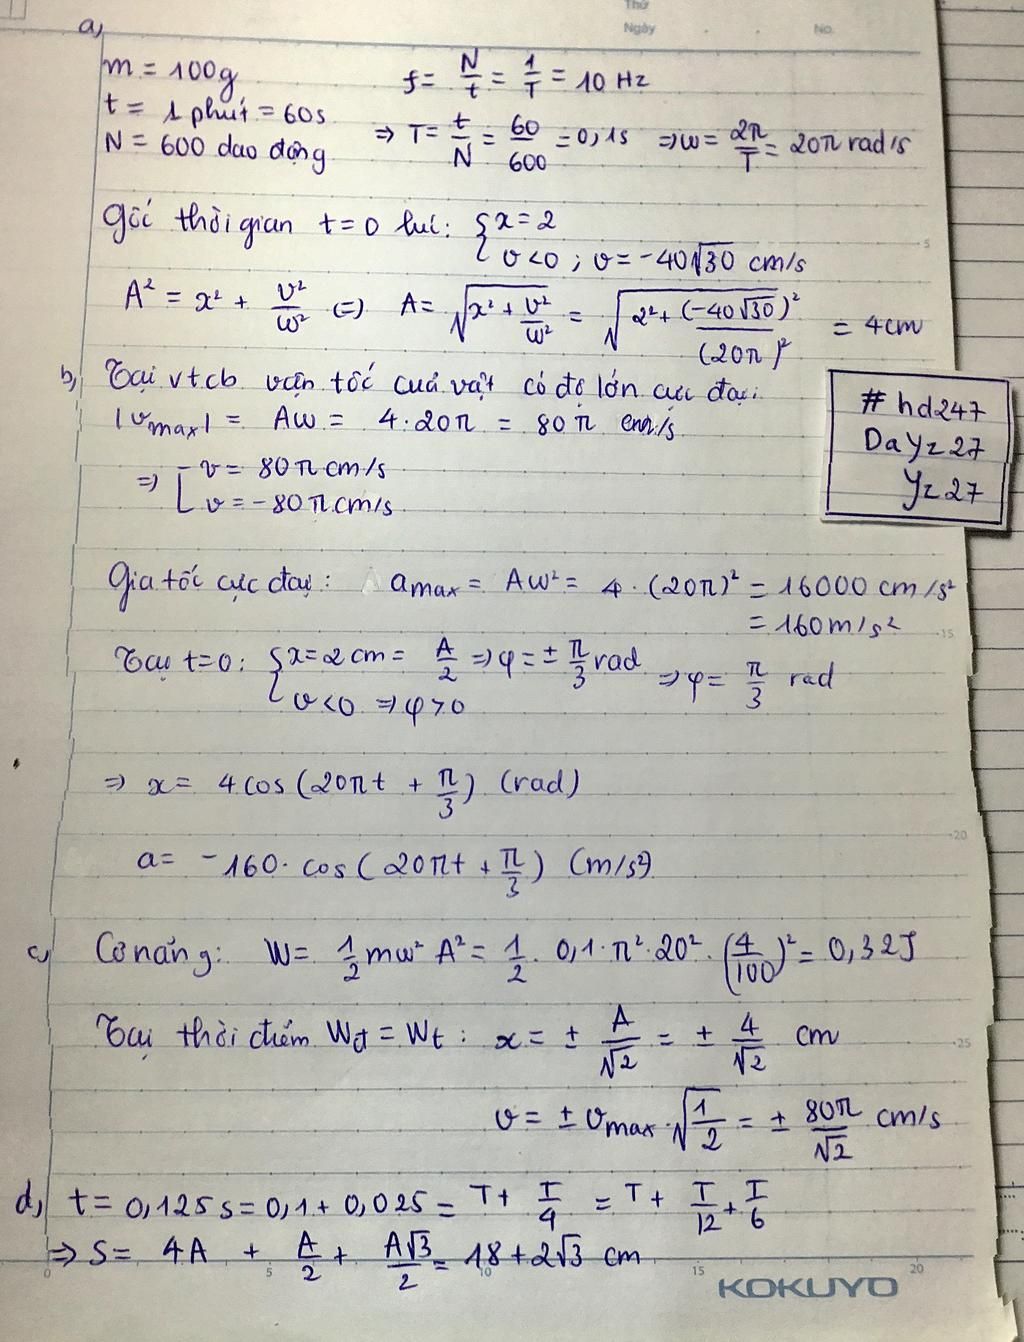 Thứ
Ngày No.
a,
m = 100g f = N/t = 1/T = 10 Hz
t = 1 phút = 60s
N = 600 dao động => T = t/N = 60/600 = 0,1s => ω = 2π/T = 20π rad/s
gốc thời gian t=0 lúc: { x = 2
v < 0 ; v = -40√30 cm/s
A² = x² + v²/ω² (=) A = √(x² + v²/ω²) = √(2² + (-40√30)²/(20π)²) = 4cm
b, Tại vtcb vận tốc của vật có độ lớn cực đại:
|vmax| = Aω = 4·20π = 80π cm/s
=> [ v = 80π cm/s
v = -80π cm/s
#hd247
DaYz27
Yz27
Gia tốc cực đại: amax = Aω² = 4·(20π)² = 16000 cm/s²
= 160m/s²
Tại t=0: { x=2cm = A/2 => φ = ± π/3 rad => φ = π/3 rad
v<0 => φ>0
=> x = 4cos(20πt + π/3) (rad)
a = -160·cos(20πt + π/3) (m/s²)
c, Cơ năng: W = 1/2 mω²A² = 1/2 · 0,1·π²·20²·(4/100)² = 0,32J
Tại thời điểm Wđ = Wt : x = ± A/√2 = ± 4/√2 cm
v = ± vmax·√(1/2) = ± 80π/√2 cm/s
d, t = 0,125s = 0,1 + 0,025 = T + T/4 = T + T/12 + T/6
=> S = 4A + A/2 + A√3/2 = 18 + 2√3 cm
0 5 10 15 20
KOKUYO
5
15
20
25